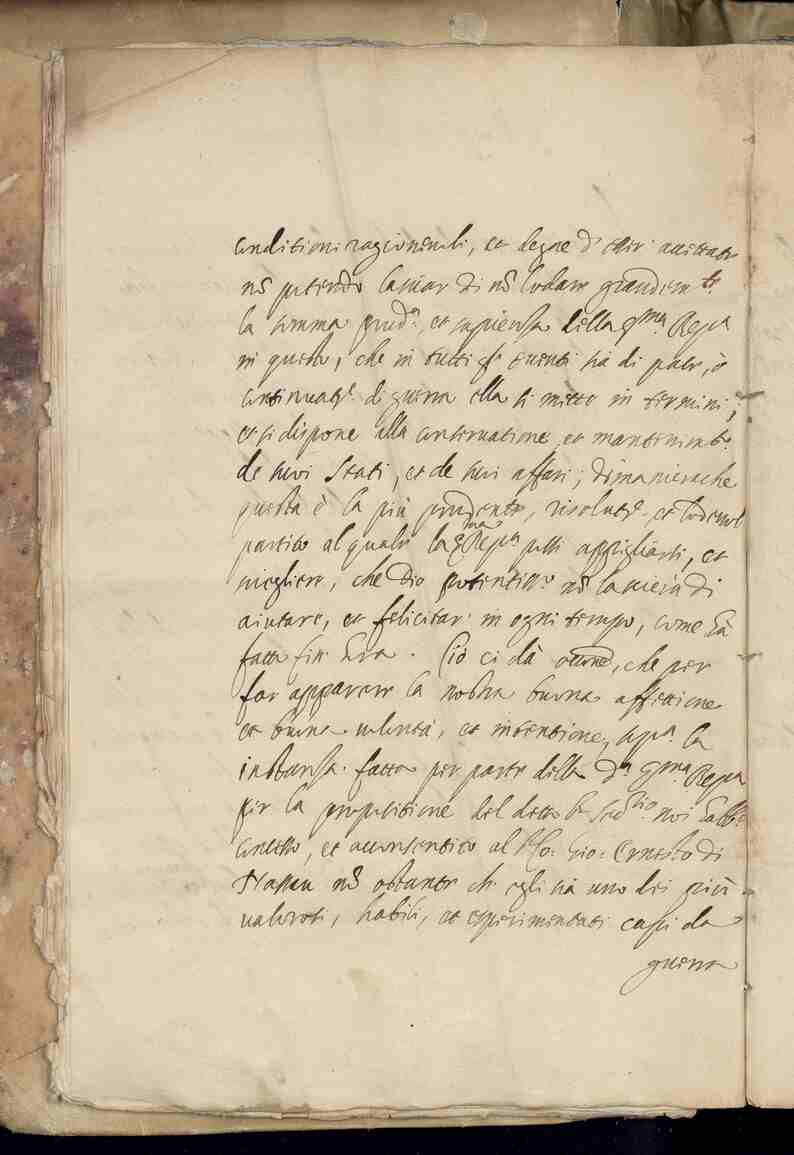 conditioni ragionevoli, et degne d'esser accettate
nõ potendo lasciar di nõ lodare grandem.te
la somma prud.a et sapienza della S.ma Rep.a
in questo, che in tutti gl' eventi sia di pace, ò
continuat.e di guerra ella si mette in termini,
et si dispone alla conservatione et mantenimento
de suoi Stati, et de suoi affari; dimanierache
questo è la più prudente, risoluta et lodevol
partito al quale la S.ma Rep.a possi appigliarsi, et
migliore, che Dio potentiss.o nõ lascierà di
aiutare, et felicitar in ogni tempo, come hà
fatto fin hora. Ciò ci dà occ.ne, che per
far apparere la nostra buona affettione
et buona volontà, et intentione, sop.a la
instanza fatta per parte della d.a S.ma Rep.a
per la propositione del detto Seg.rio noi habb.o
concesso, et acconsentito al Co: Gio: Ernesto di
Nassau nõ ostante ch' egli sia uno dei più
valorosi, habili, et esperimentati capi da
guerra